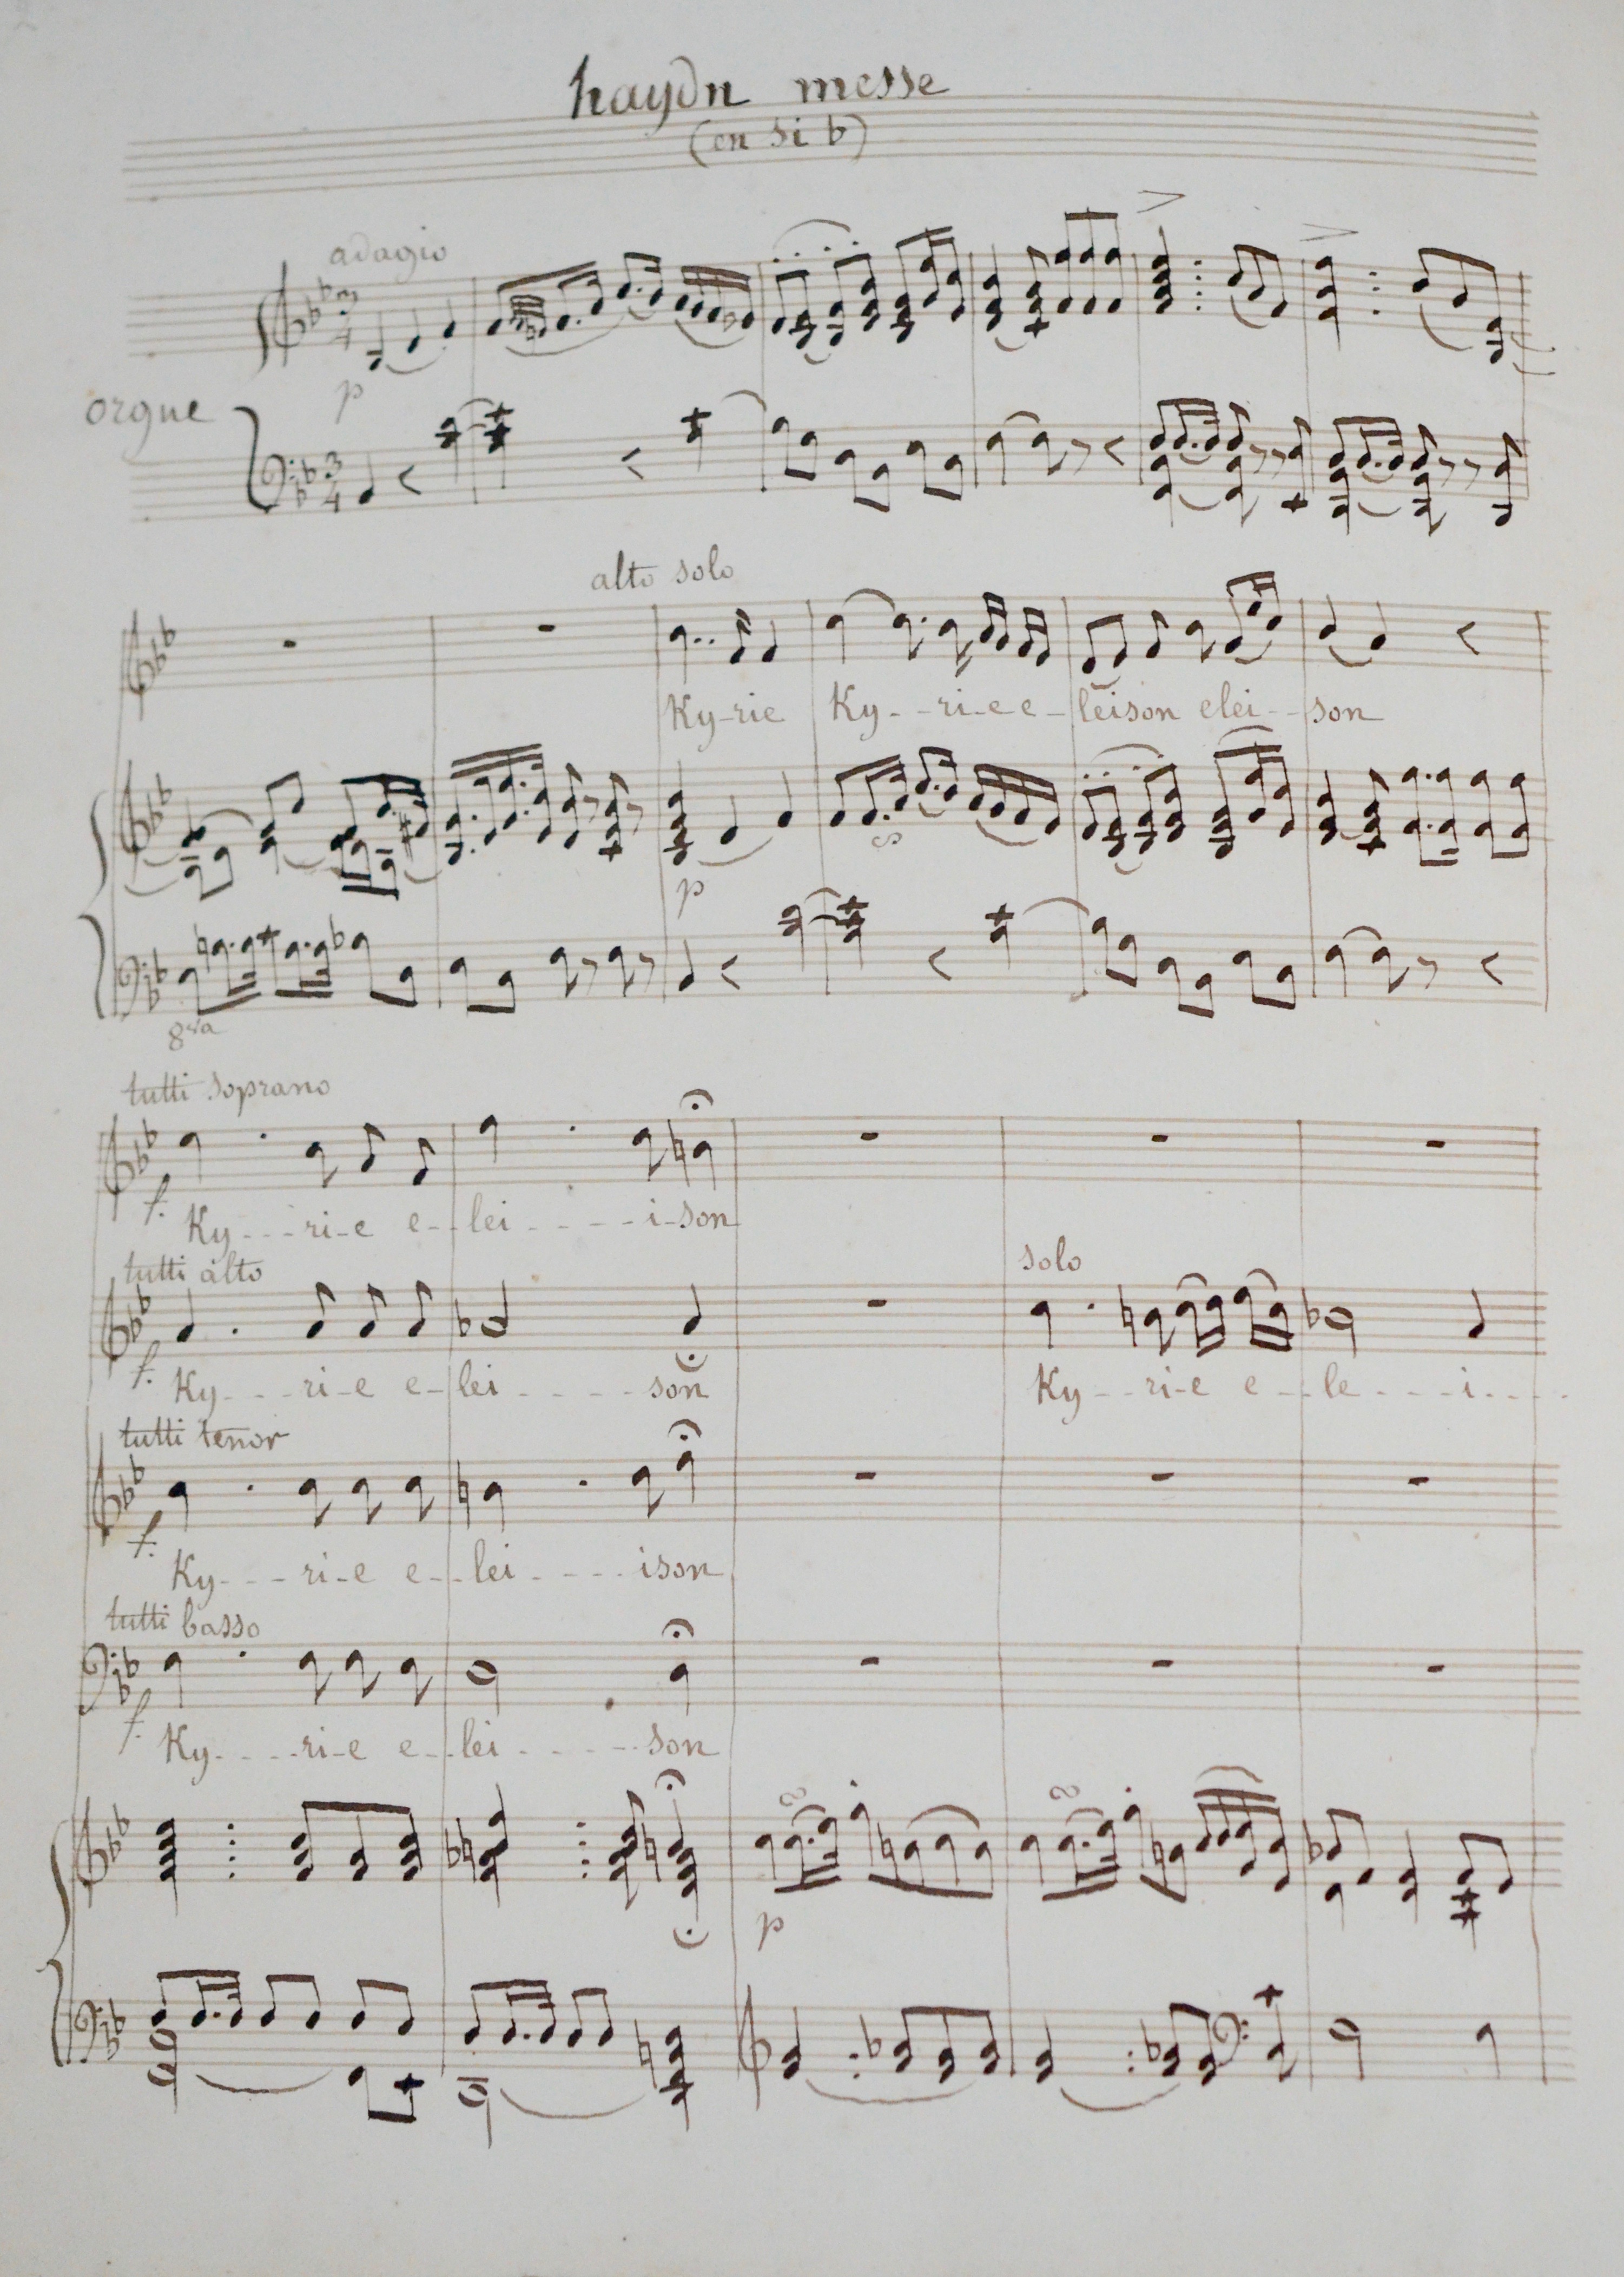 haydn messe
(en si b)
adagio
3
4
p
orgue
3
4
alto solo
Ky-rie Ky--ri-e e-leison elei--son
p
8va
tutti soprano
f.
Ky---ri-e e--lei-----i-son
tutti alto
solo
f.
Ky---ri-e e-lei-----son Ky--ri-e e--le---i----
tutti tenor
f.
Ky---ri-e e--lei----ison
tutti basso
f.
Ky----ri-e e--lei-----son
p